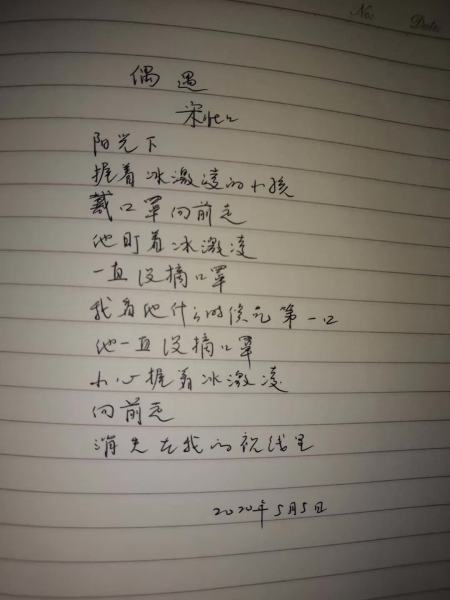 No:
Date:
偶遇
宋
阳光下
握着冰激凌的小孩
戴口罩向前走
他盯着冰激凌
一直没摘口罩
我看他什么时候吃第一口
他一直没摘口罩
小心握着冰激凌
向前走
消失在我的视线里
2020年5月5日